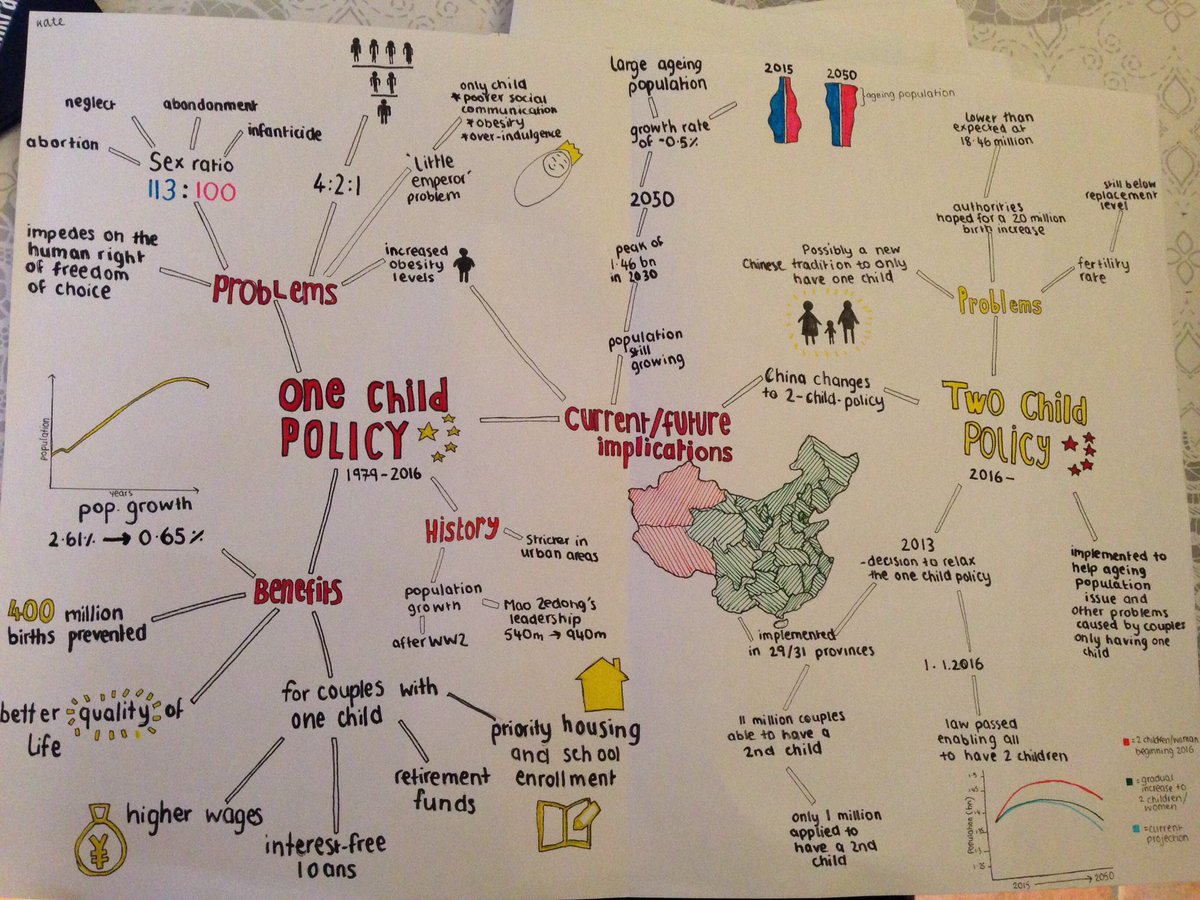 Kate
neglect
abandonment
infanticide
abortion
Sex ratio
113:100
4:2:1
only child
*poorer social
communication
*obesity
*over-indulgence
'Little
emperor'
problem
impedes on the
human right
of freedom
of choice
increased
obesity
levels
Problems
One Child
Policy
1979-2016
population
years
pop. growth
2.61% → 0.65%
Benefits
400 million
births prevented
better quality of
life
for couples with
one child
higher wages
¥
interest-free
loans
retirement
funds
priority housing
and school
enrollment
History
stricter in
urban areas
population
growth
after WW2
Mao Zedong's
leadership
540m → 940m
Current/future
implications
large ageing
population
growth rate
of -0.5%
2050
peak of
1.46 bn
in 2030
population
still
growing
2015
2050
ageing population
China changes
to 2-child-policy
Possibly a new
Chinese tradition to only
have one child
lower than
expected at
18.46 million
authorities
hoped for a 20 million
birth increase
still below
replacement
level
fertility
rate
Problems
Two Child
Policy
2016-
2013
-decision to relax
the one child policy
implemented
in 29/31 provinces
11 million couples
able to have a
2nd child
only 1 million
applied to
have a 2nd
child
1.1.2016
law passed
enabling all
to have 2 children
implemented to
help ageing
population
issue and
other problems
caused by couples
only having one
child
= 2 children/woman
beginning 2016
= gradual
increase to
2 children/
women
= current
projection
Population (bn)
2015 → 2050